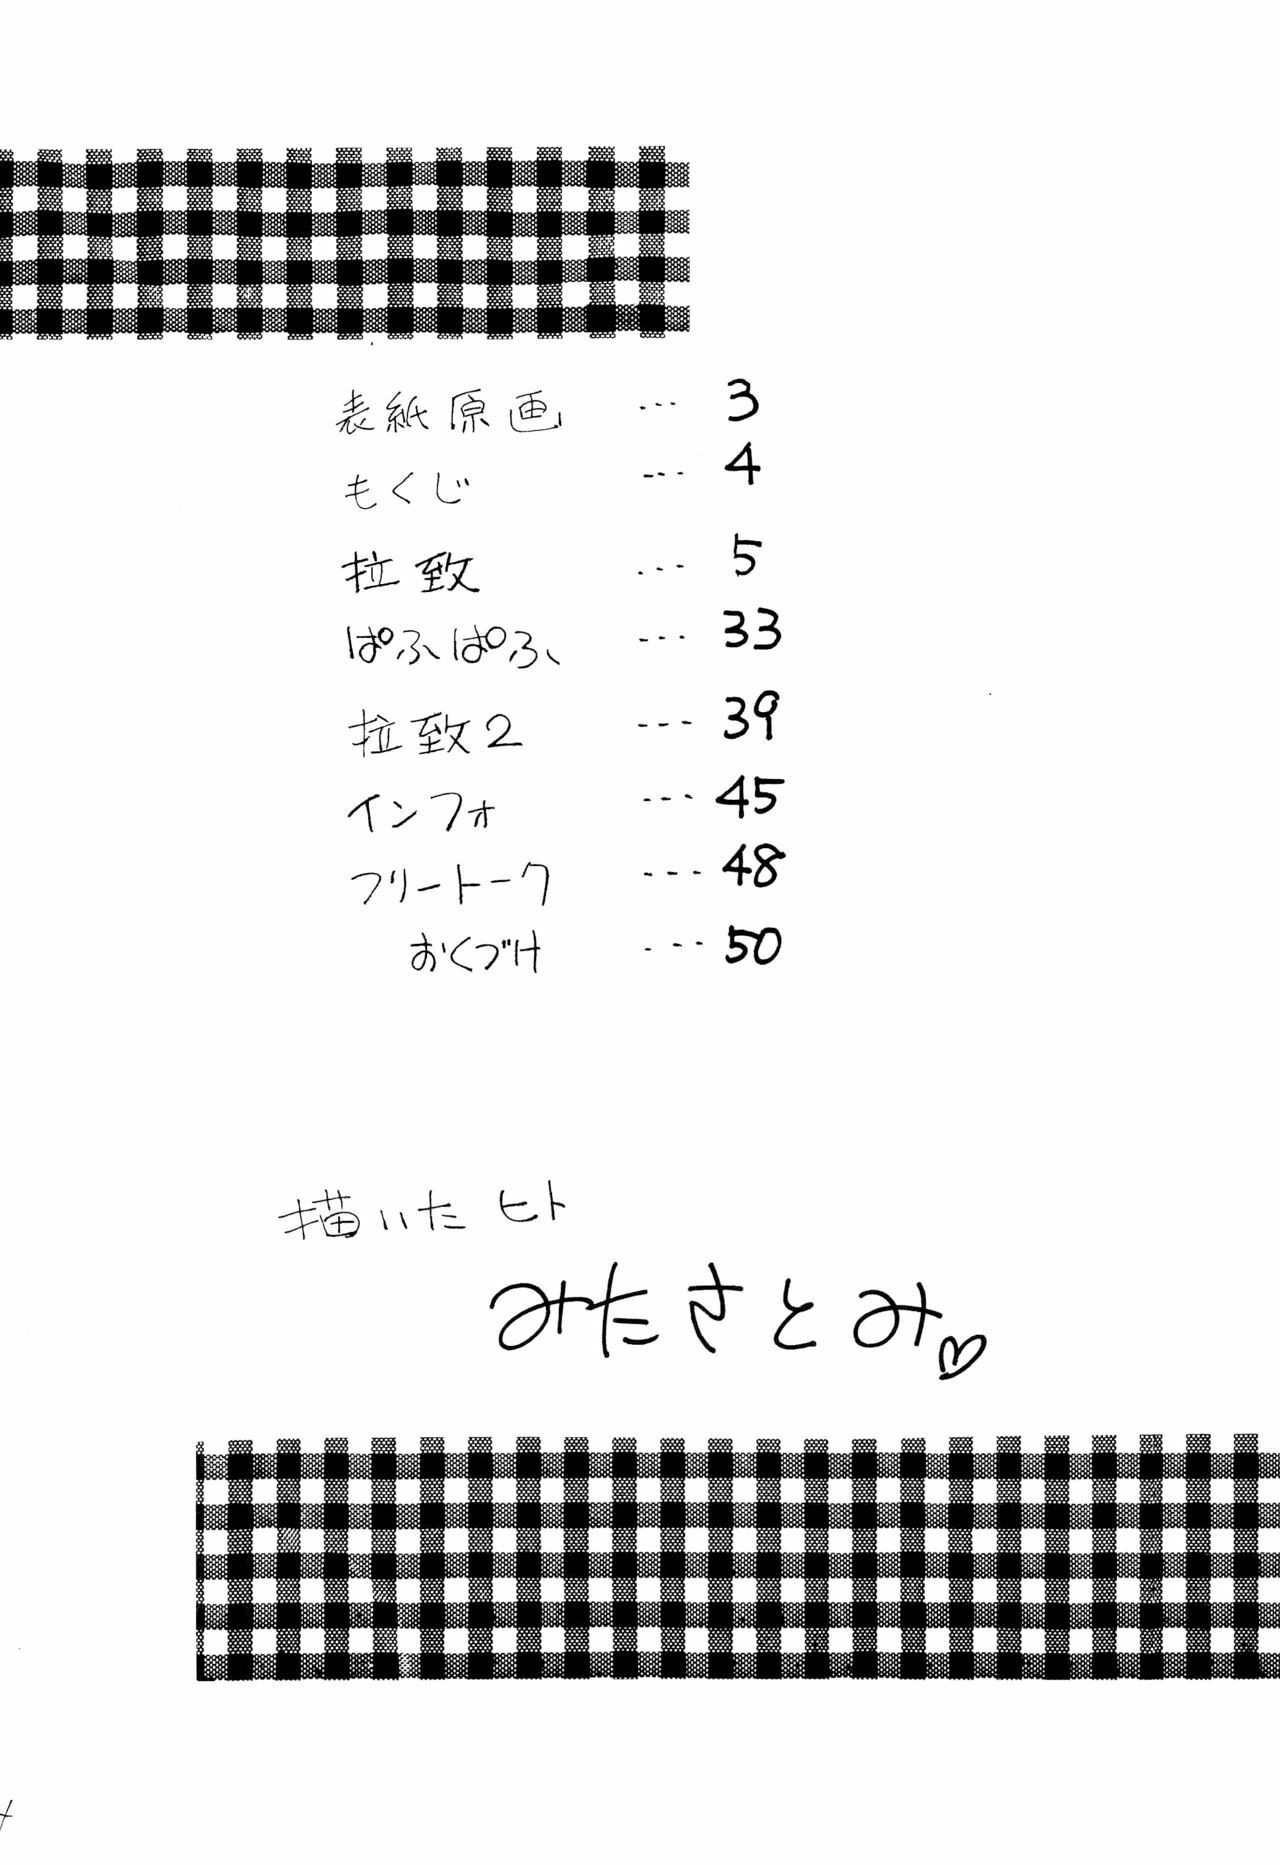 表紙原画 --- 3
もくじ --- 4
拉致 --- 5
ぱふぱふ --- 33
拉致2 --- 39
インフォ --- 45
フリートーク --- 48
おくづけ --- 50
描いたヒト
みたさとみ♡